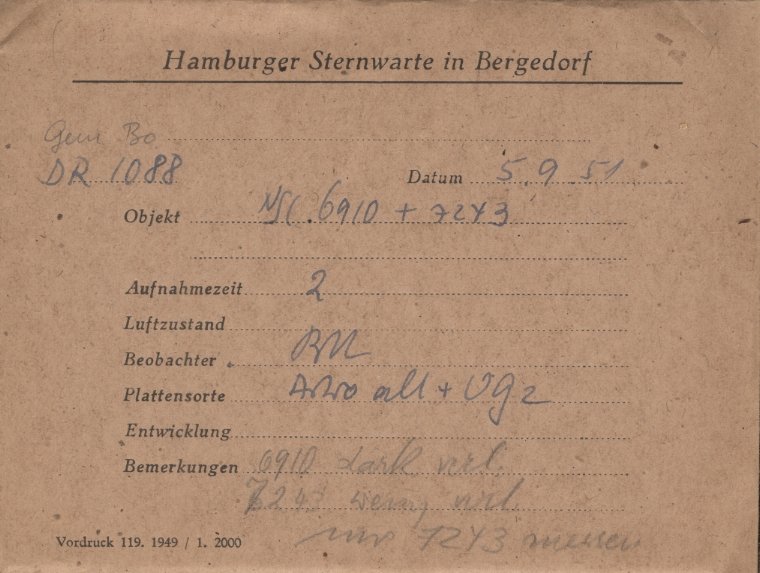 Hamburger Sternwarte in Bergedorf
Gem Bo
DR 1088
Datum 5.9.51
Objekt NGC 6910 + 7243
Aufnahmezeit 2
Luftzustand
Beobachter
Plattensorte Astro all + UG2
Entwicklung
Bemerkungen 6910 stark verl.
7243 wenig verl.
nur 7243 messen
Vordruck 119. 1949 / 1. 2000